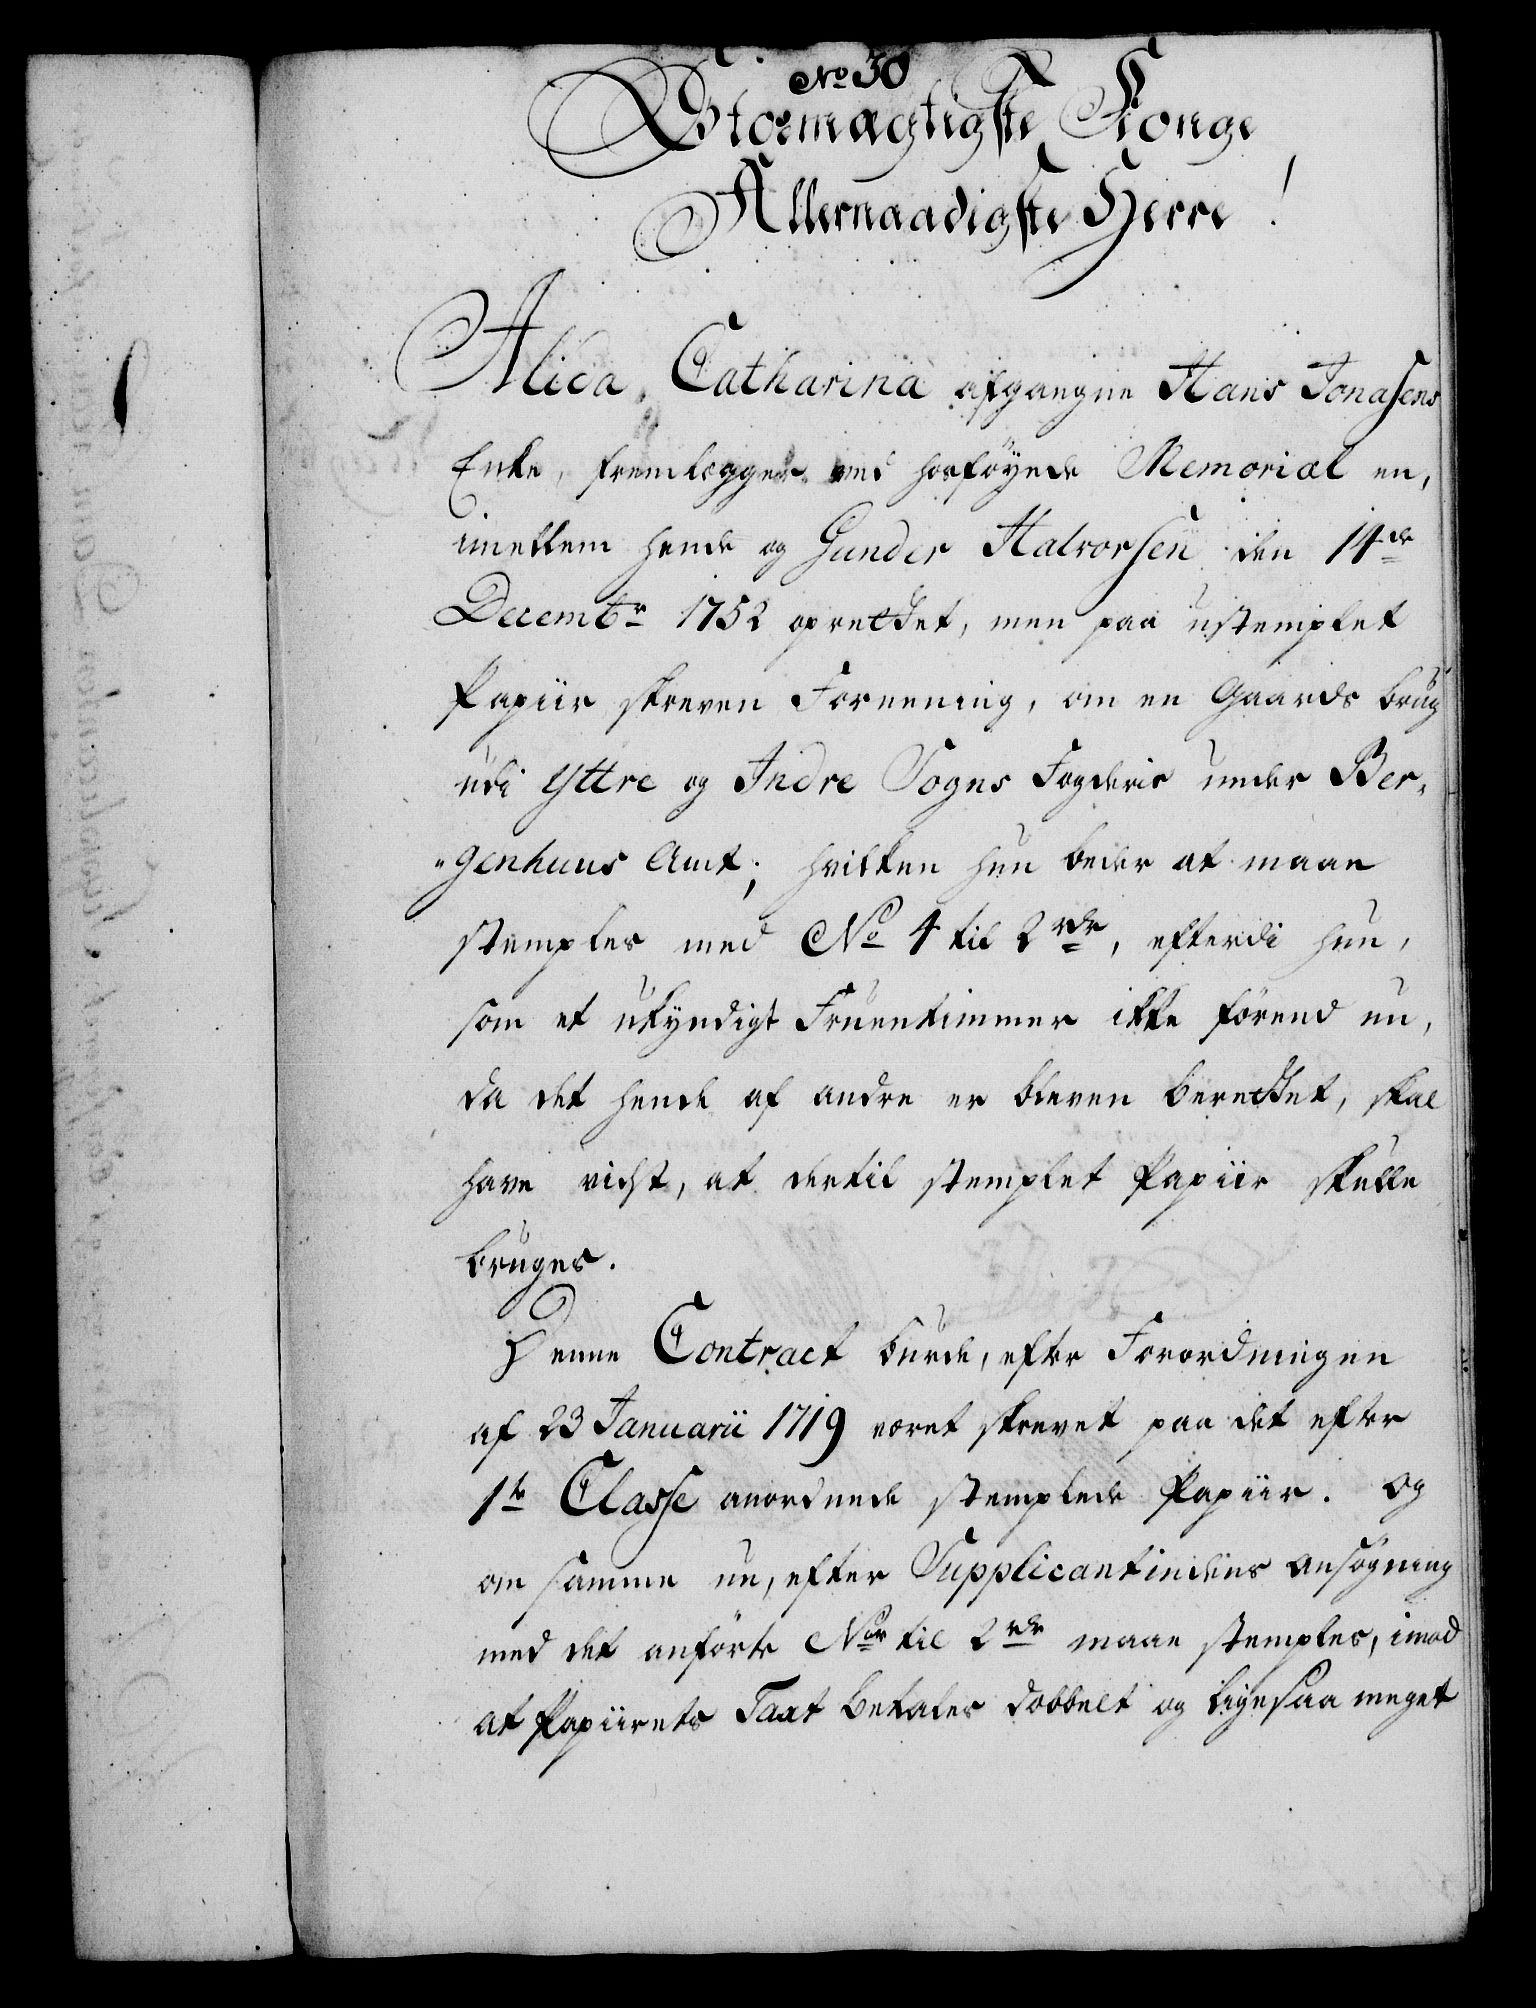 No 30
Stormægtigste Konge
Allernaadigste Herre!
Alida Catharina afgangne Hans Jonasens
Enke, fremlægger med hosföyede Memorial en,
imellem hende og Gunder Halvorsen den 14de
Decembr 1752 oprettet, men paa ustemplet
Papiir skreven Foreening, om en Gaards brug
udi Yttre og Indre Sogns Fogderie under Ber-
genhuus Amt; hvilken hun beder at maae
stemples med No 4 til 2 rdr, efterdi hun,
som et ukyndigt Fruentimmer ikke förend nu,
da det hende af andre er bleven berettet, skal
have vidst, at dertil stemplet Papiir skulle
bruges.
Denne Contract burde, efter Forordningen
af 23 Januarii 1719 været skrevet paa det efter
1te Classe anordnede stemplede Papiir. Og
om samme nu, efter Supplicantindens Ansögning
med det anförte Nor til 2 rdr maae stemples, imod
at Papiirets Taxt betales dobbelt og ligesaa meget